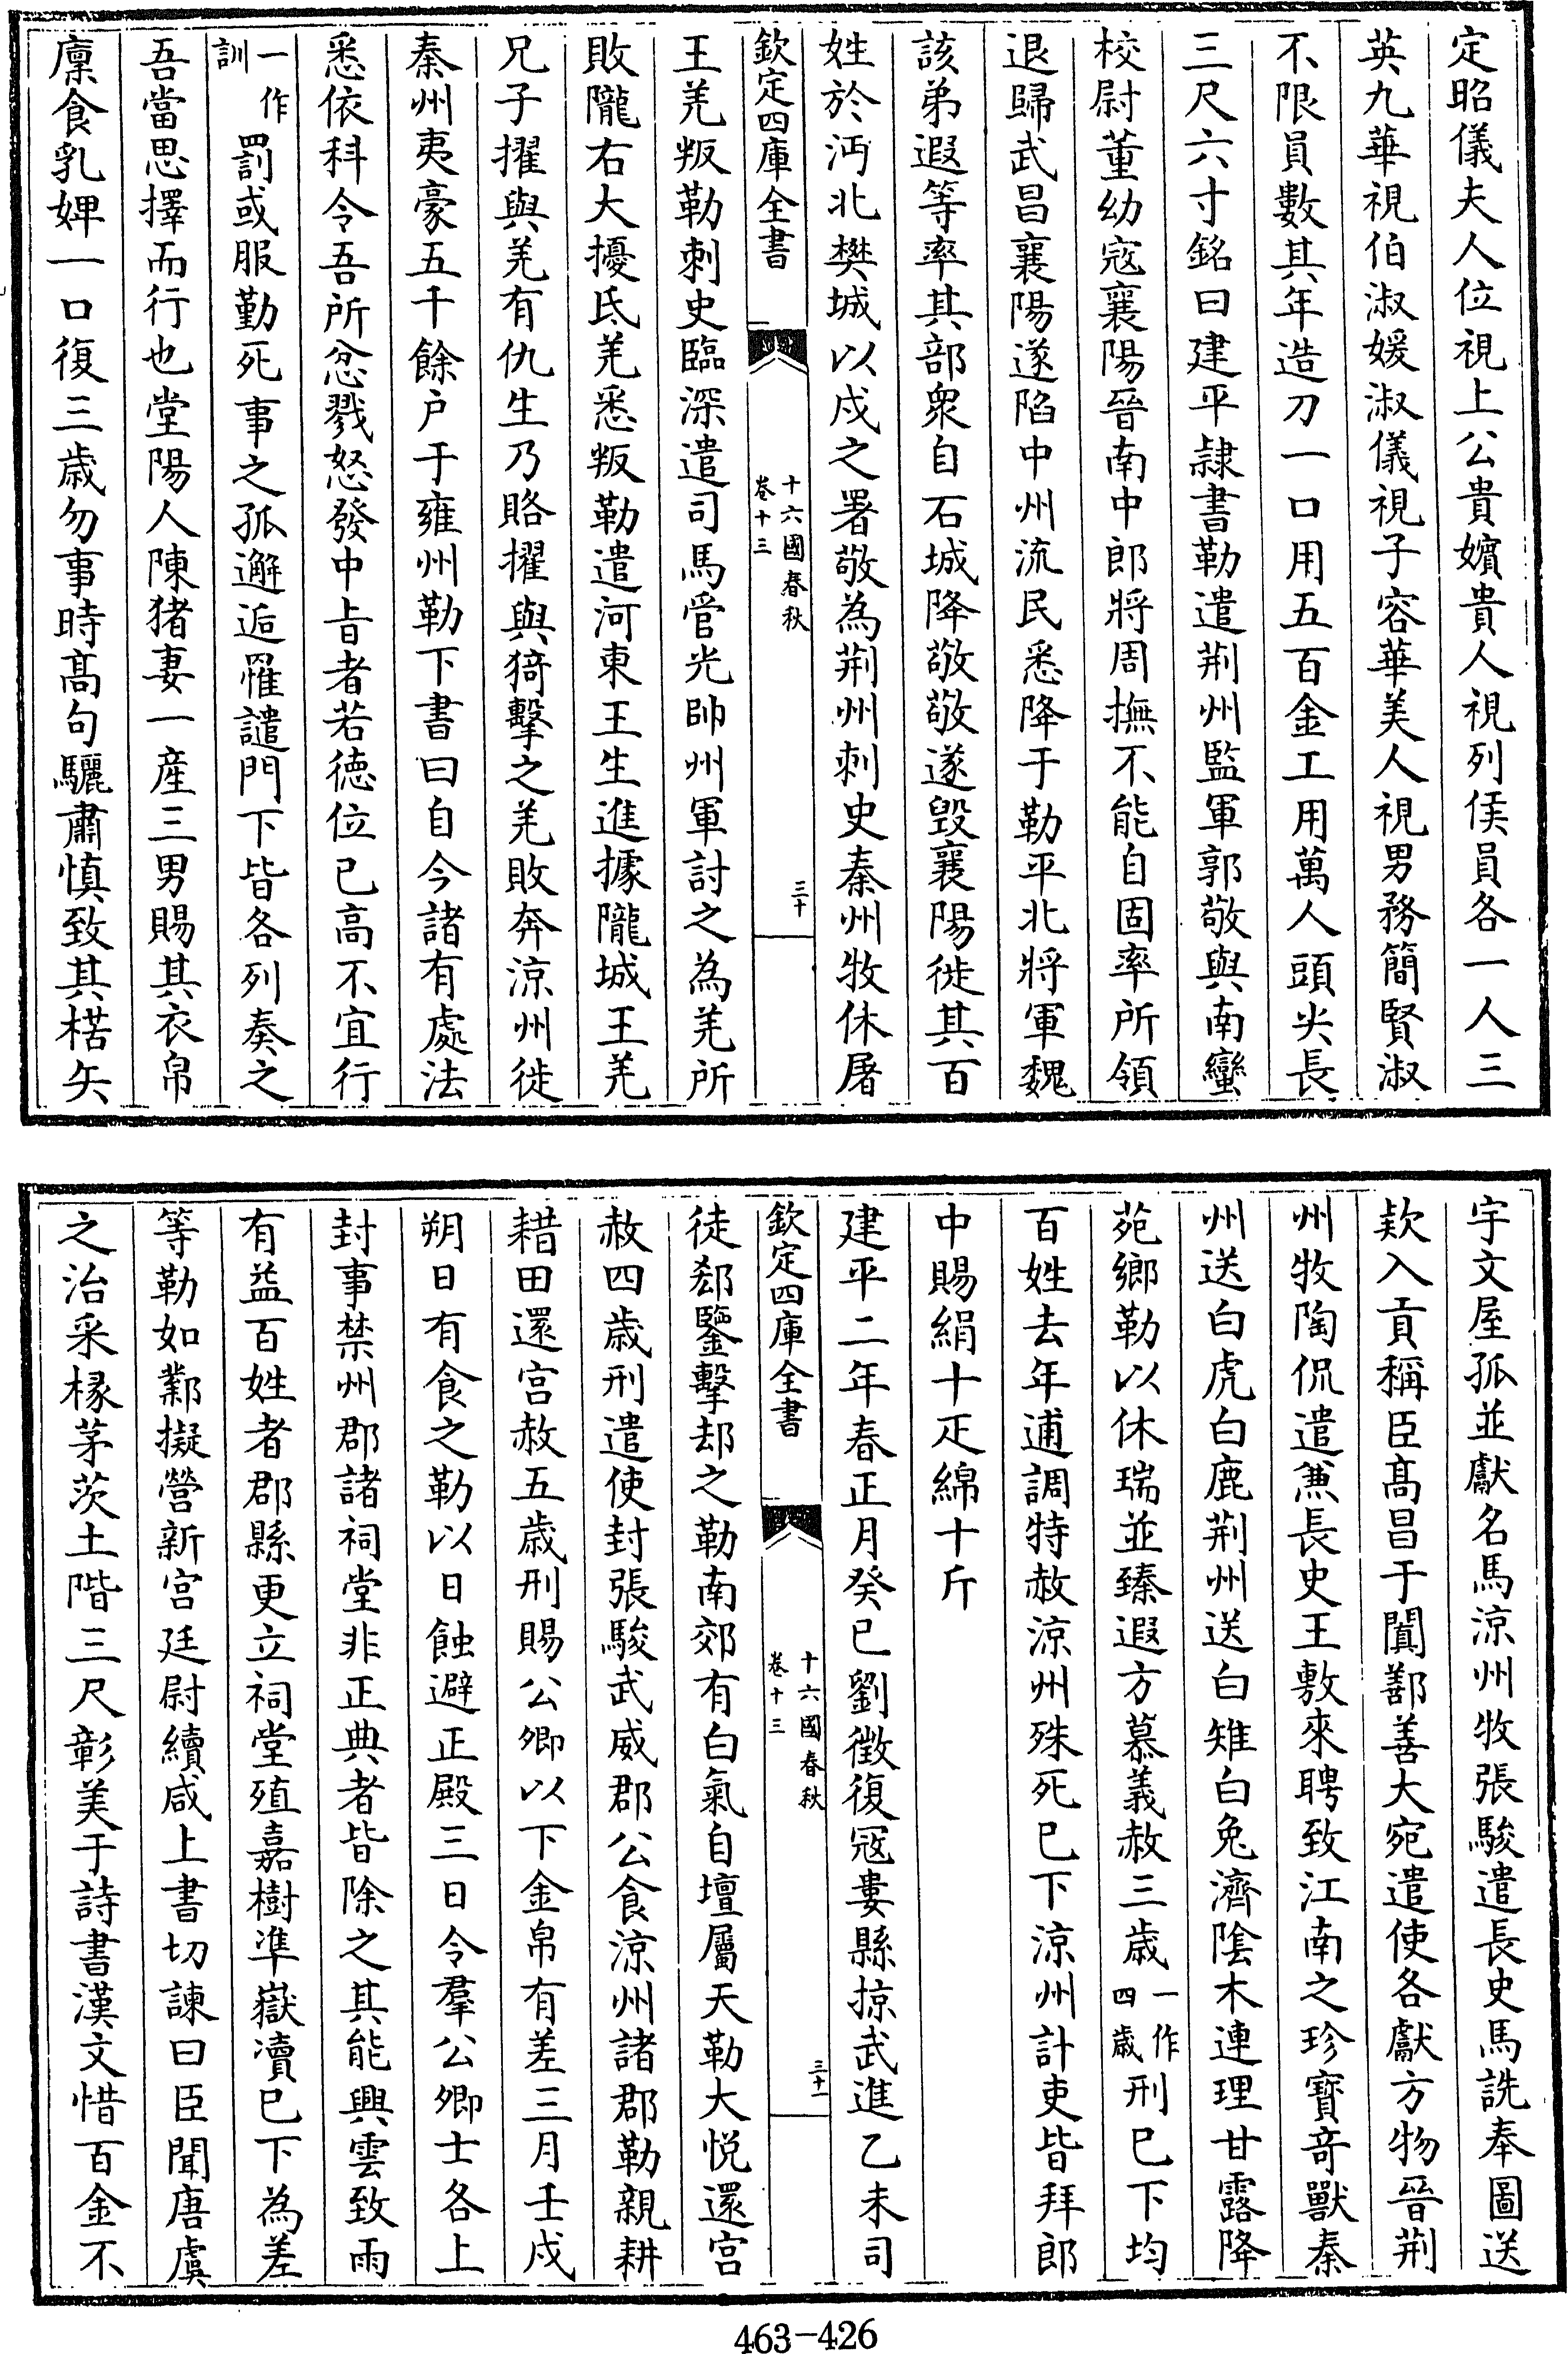 定昭儀夫人位視上公貴嬪貴人視列侯員各一人三
英九華視伯淑媛淑儀視子容華美人視男務簡賢淑
不限員數其年造刀一口用五百金工用萬人頭尖長
三尺六寸銘曰建平隷書勒遣荆州監軍郭敬與南蠻
校尉董幼寇襄陽晉南中郎將周撫不能自固率所領
退歸武昌襄陽遂陷中州流民悉降于勒平北將軍魏
該弟遐等率其部衆自石城降敬敬遂毀襄陽徙其百
姓於沔北樊城以戍之署敬為荆州刺史秦州牧休屠
欽定四庫全書
十六國春秋
卷十三
三十
王羌叛勒刺史臨深遣司馬管光帥州軍討之為羌所
敗隴右大擾氐羌悉叛勒遣河東王生進據隴城王羌
兄子擢與羌有仇生乃賂擢與猗擊之羌敗奔涼州徙
秦州夷豪五千餘户于雍州勒下書曰自今諸有處法
悉依科令吾所忿戮怒發中旨者若德位已高不宜行
一作
訓
罰或服勤死事之孤邂逅罹譴門下皆各列奏之
吾當思擇而行也堂陽人陳猪妻一産三男賜其衣帛
廪食乳婢一口復三歳勿事時髙句驪肅慎致其楛矢
宇文屋孤並獻名馬涼州牧張駿遣長史馬詵奉圖送
欵入貢稱臣髙昌于闐鄯善大宛遣使各獻方物晉荆
州牧陶侃遣兼長史王敷來聘致江南之珍寳竒獸秦
州送白虎白鹿荆州送白雉白兔濟隂木連理甘露降
苑鄉勒以休瑞並臻遐方慕義赦三歳
一作
四歳
刑已下均
百姓去年逋調特赦涼州殊死已下涼州計吏皆拜郎
中賜絹十疋綿十斤
建平二年春正月癸巳劉徴復寇婁縣掠武進乙未司
欽定四庫全書
十六國春秋
卷十三
三十一
徒郄鑒擊却之勒南郊有白氣自壇屬天勒大悦還宫
赦四歳刑遣使封張駿武威郡公食涼州諸郡勒親耕
耤田還宫赦五歳刑賜公卿以下金帛有差三月壬戍
朔日有食之勒以日蝕避正殿三日令羣公卿士各上
封事禁州郡諸祠堂非正典者皆除之其能興雲致雨
有益百姓者郡縣更立祠堂殖嘉樹凖嶽瀆已下為差
等勒如鄴擬營新宫廷尉續咸上書切諫曰臣聞唐虞
之治采椽茅茨土階三尺彰美于詩書漢文惜百金不
463-426